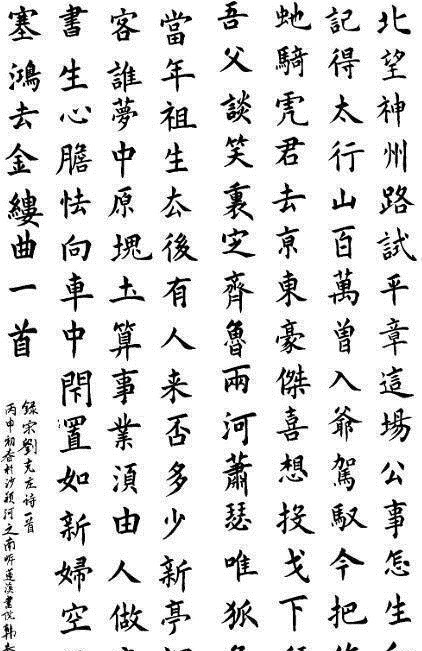 北望神州路試平章這場公事怎生
記得太行山百萬曾入爺駕馭今把
虵騎虎君去亰東豪傑喜想投戈下
吾父談笑裏定齊魯兩河蕭瑟唯狐
當年祖生去後有人来否多少新亭
客誰夢中原塊土算事業湏由人做
書生心膽怯向車中閇置如新婦空
塞鴻去金縷曲一首
錄宋劉克庄诗一首
丙申初春於沙潁河之南听蓮溪書院韓